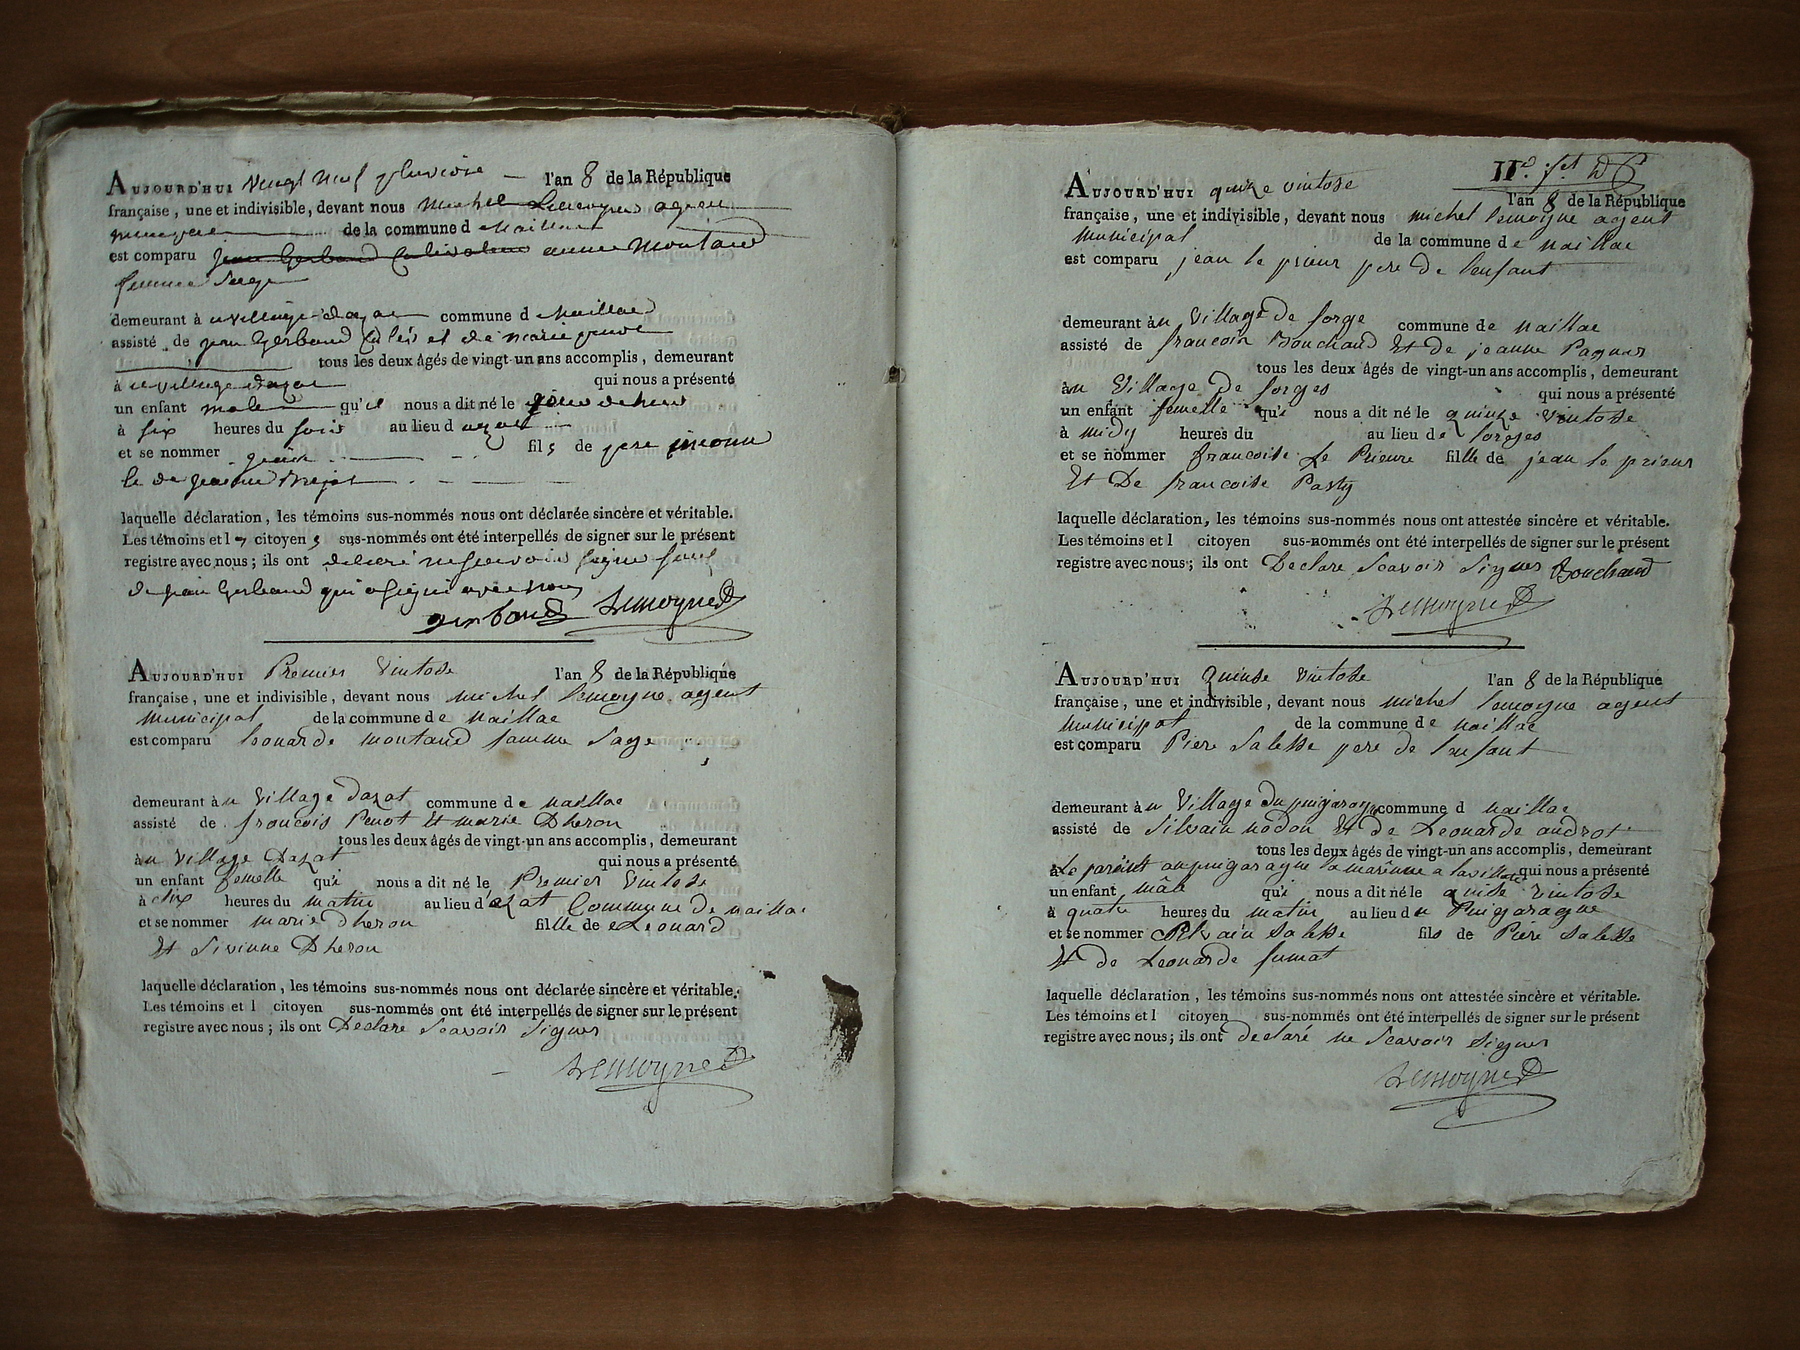 AUJOURD'HUI vingt neuf pluviose — l'an 8 de la République
française, une et indivisible, devant nous michel Lemoyne agent
de la commune d Naillac
est comparu jean Gerbaud anne montaud
femme sage
demeurant à u village dazat commune d Naillac
assisté de jean Gerbaud et de marie
tous les deux âgés de vingt-un ans accomplis, demeurant
à u village dazat qui nous a présenté
un enfant male qu'il nous a dit né le
à six heures du soir au lieu d azat
et se nommer fils de pere inconu
le de
laquelle déclaration, les témoins sus-nommés nous ont déclarée sincère et véritable.
Les témoins et l citoyen s sus-nommés ont été interpellés de signer sur le présent
registre avec nous; ils ont declaré ne scavoir signe sauf
de jean Gerbaud qui a signé avec nous
gerbaud Lemoyne
AUJOURD'HUI Premier Vintose l'an 8 de la République
française, une et indivisible, devant nous michel lemoyne agent
municipal de la commune de naillac
est comparu leonarde montaud famme sage
demeurant à u Village dazat commune de naillac
assisté de francois Penot Et marie Dheron
tous les deux âgés de vingt-un ans accomplis, demeurant
à u Village Dazat qui nous a présenté
un enfant femelle qu'i nous a dit né le Premier Vintose
à dix heures du matin au lieu d'azat Commune de naillac
et se nommer marie dheron fille de Leonard
Et Dheron
laquelle déclaration, les témoins sus-nommés nous ont déclarée sincère et véritable.
Les témoins et l citoyen sus-nommés ont été interpellés de signer sur le présent
registre avec nous; ils ont Declare Scavoir Signer
Lemoyne
II
AUJOURD'HUI quinze vintose l'an 8 de la République
française, une et indivisible, devant nous michel lemoyne agent
municipal de la commune de naillac
est comparu jean le prieur pere De lenfant
demeurant à u Village De forge commune de naillac
assisté de francoin Bouchaud Et de jeanne
tous les deux âgés de vingt-un ans accomplis, demeurant
àu Village De forges qui nous a présenté
un enfant femelle qu'i nous a dit né le quinze vintose
à midy heures du au lieu de forges
et se nommer francoise Le Prieure fille de jean le prieur
Et De francoise Pasty
laquelle déclaration, les témoins sus-nommés nous ont attestée sincère et véritable.
Les témoins et l citoyen sus-nommés ont été interpellés de signer sur le présent
registre avec nous; ils ont Declare Scavoir Signer Bouchaud
Lemoyne
AUJOURD'HUI quinse vintose l'an 8 de la République
française, une et indivisible, devant nous michel lemoyne agent
municipal de la commune de naillac
est comparu Piere Salesse pere de lenfant
demeurant à u Village Du puigaragne commune d naillac
assisté de Silvain nodon Et de Leonarde audrot
tous les deux âgés de vingt-un ans accomplis, demeurant
à Le parent au puigaragne la marinne a qui nous a présenté
un enfant mâle qu'i nous a dit né le quise vintose
à quatre heures du matin au lieu du Puigaragne
et se nommer Silvain Salesse fils de Piere Salesse
Et de Leonarde fumat
laquelle déclaration, les témoins sus-nommés nous ont attestée sincère et véritable.
Les témoins et l citoyen sus-nommés ont été interpellés de signer sur le présent
registre avec nous; ils ont declaré ne Scavoir Signer
Lemoyne